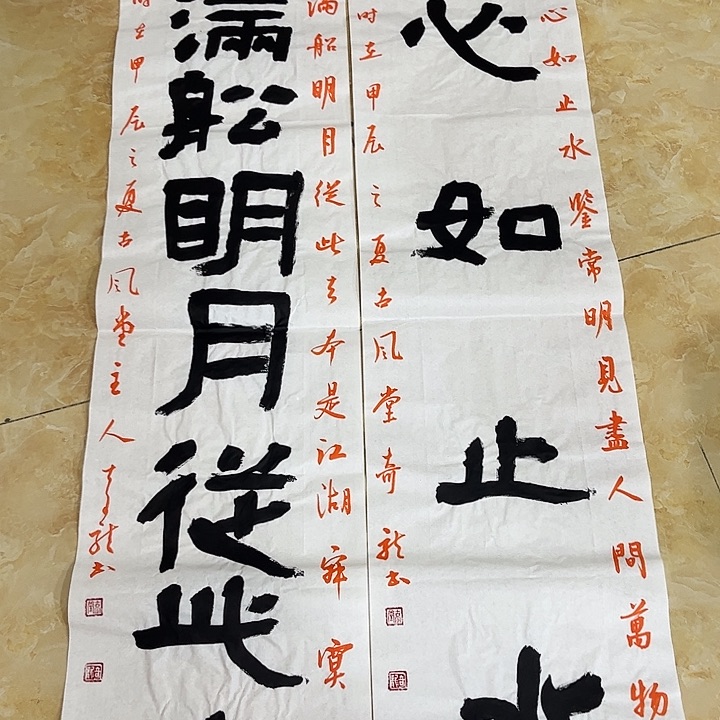 心如止水鑒常明見盡人間萬物
心如止水
时在甲辰之夏古风堂奇龙书
滿船明月從此去本是江湖寂寞
滿船明月從此
时在甲辰之夏古风堂主人奇龙书